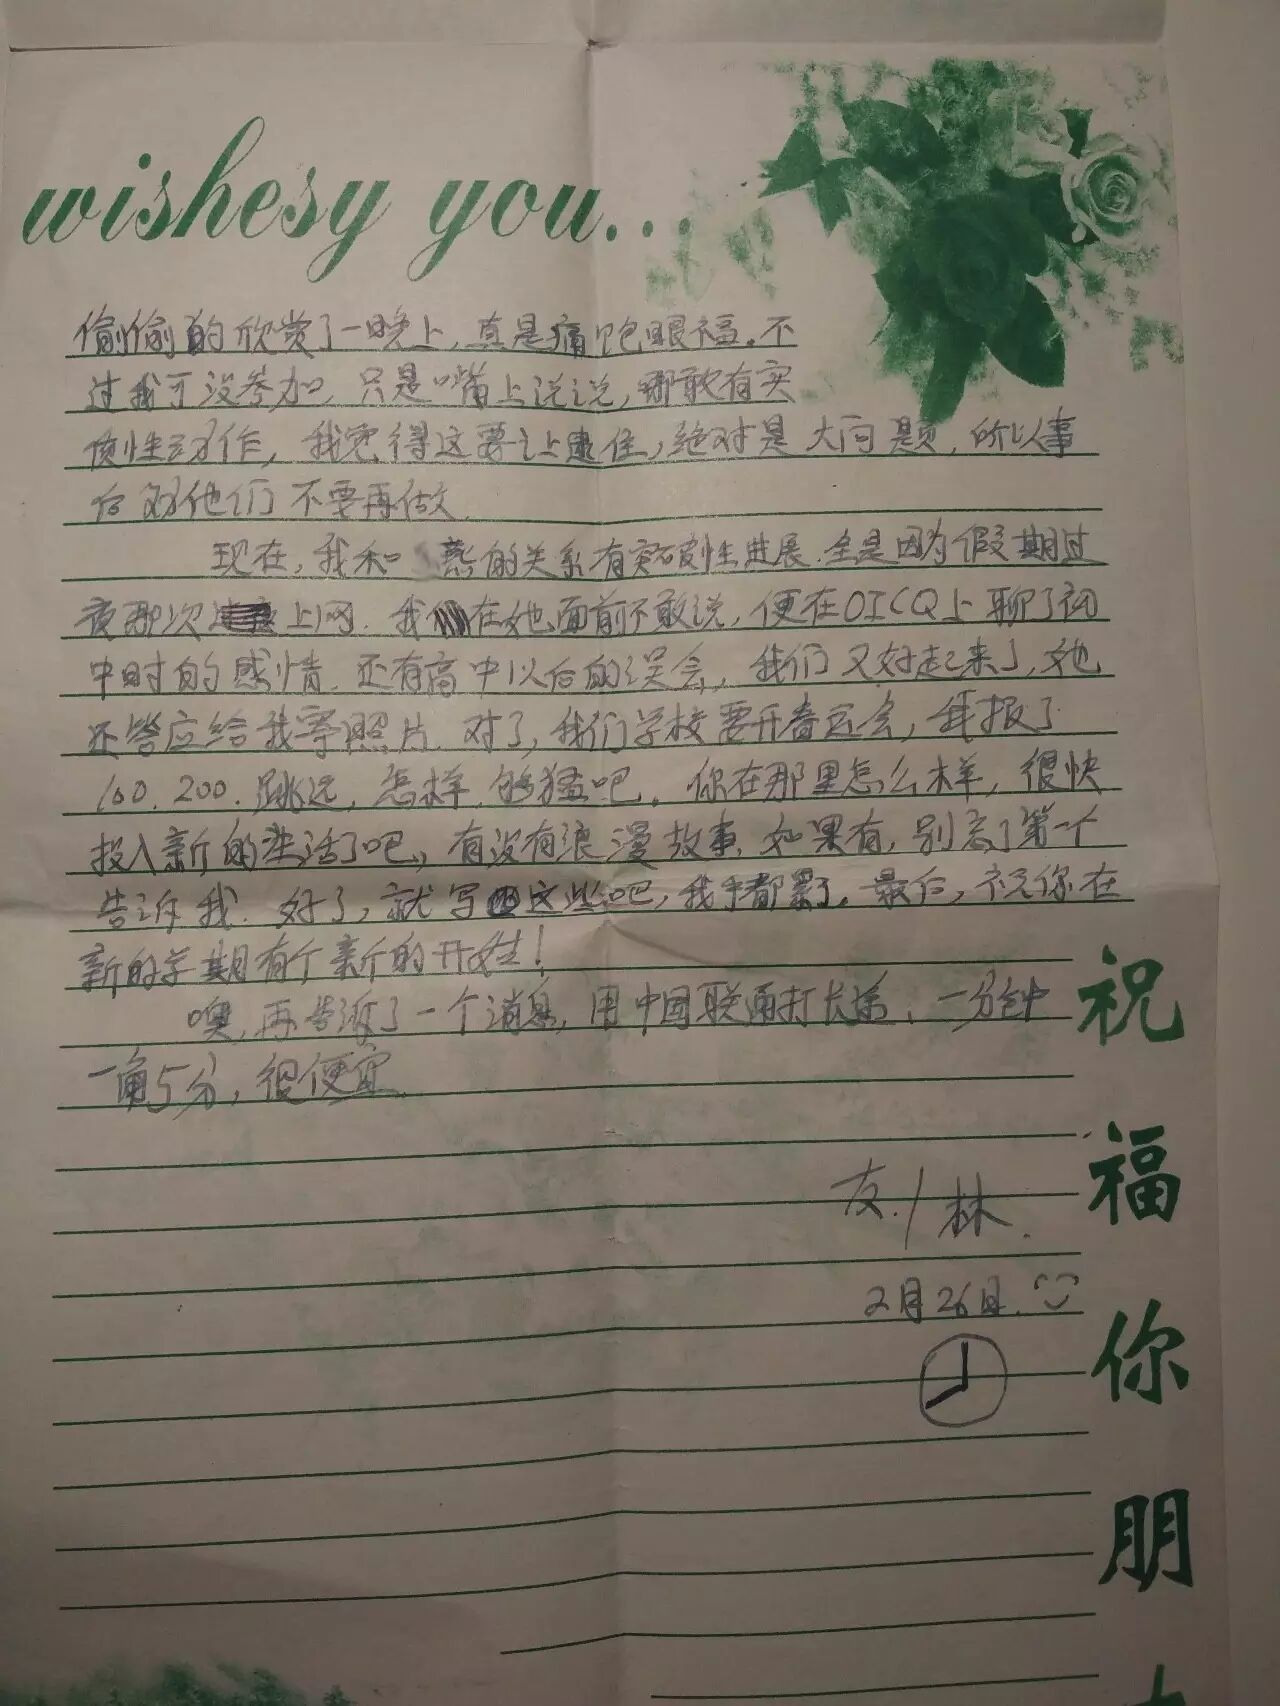 wishesy you...
偷偷的欣赏了一晚上,真是痛饱眼福。不
过我可没参加,只是嘴上说说,哪敢有实
质性动作,我觉得这要让逮住,绝对是大问题,所以事
后劝他们不要再做.
现在,我和 燕的关系有突破性进展.全是因为假期过
夜那次上网.我在她面前不敢说,便在OICQ上聊了初
中时的感情.还有高中以后的误会,我们又好起来了,她
还答应给我寄照片.对了,我们学校要开春运会,我报了
100.200.跳远,怎样,够猛吧。你在那里怎么样,很快
投入新的生活了吧,有没有浪漫故事.如果有,别忘了第一个
告诉我.好了,就写这些吧,我手都累了.最后,祝你在
新的学期有个新的开始!
噢,再告诉了一个消息,用中国联通打长途,一分钟
一角5分,很便宜.
友./林.
2月26日.
祝
福
你
朋